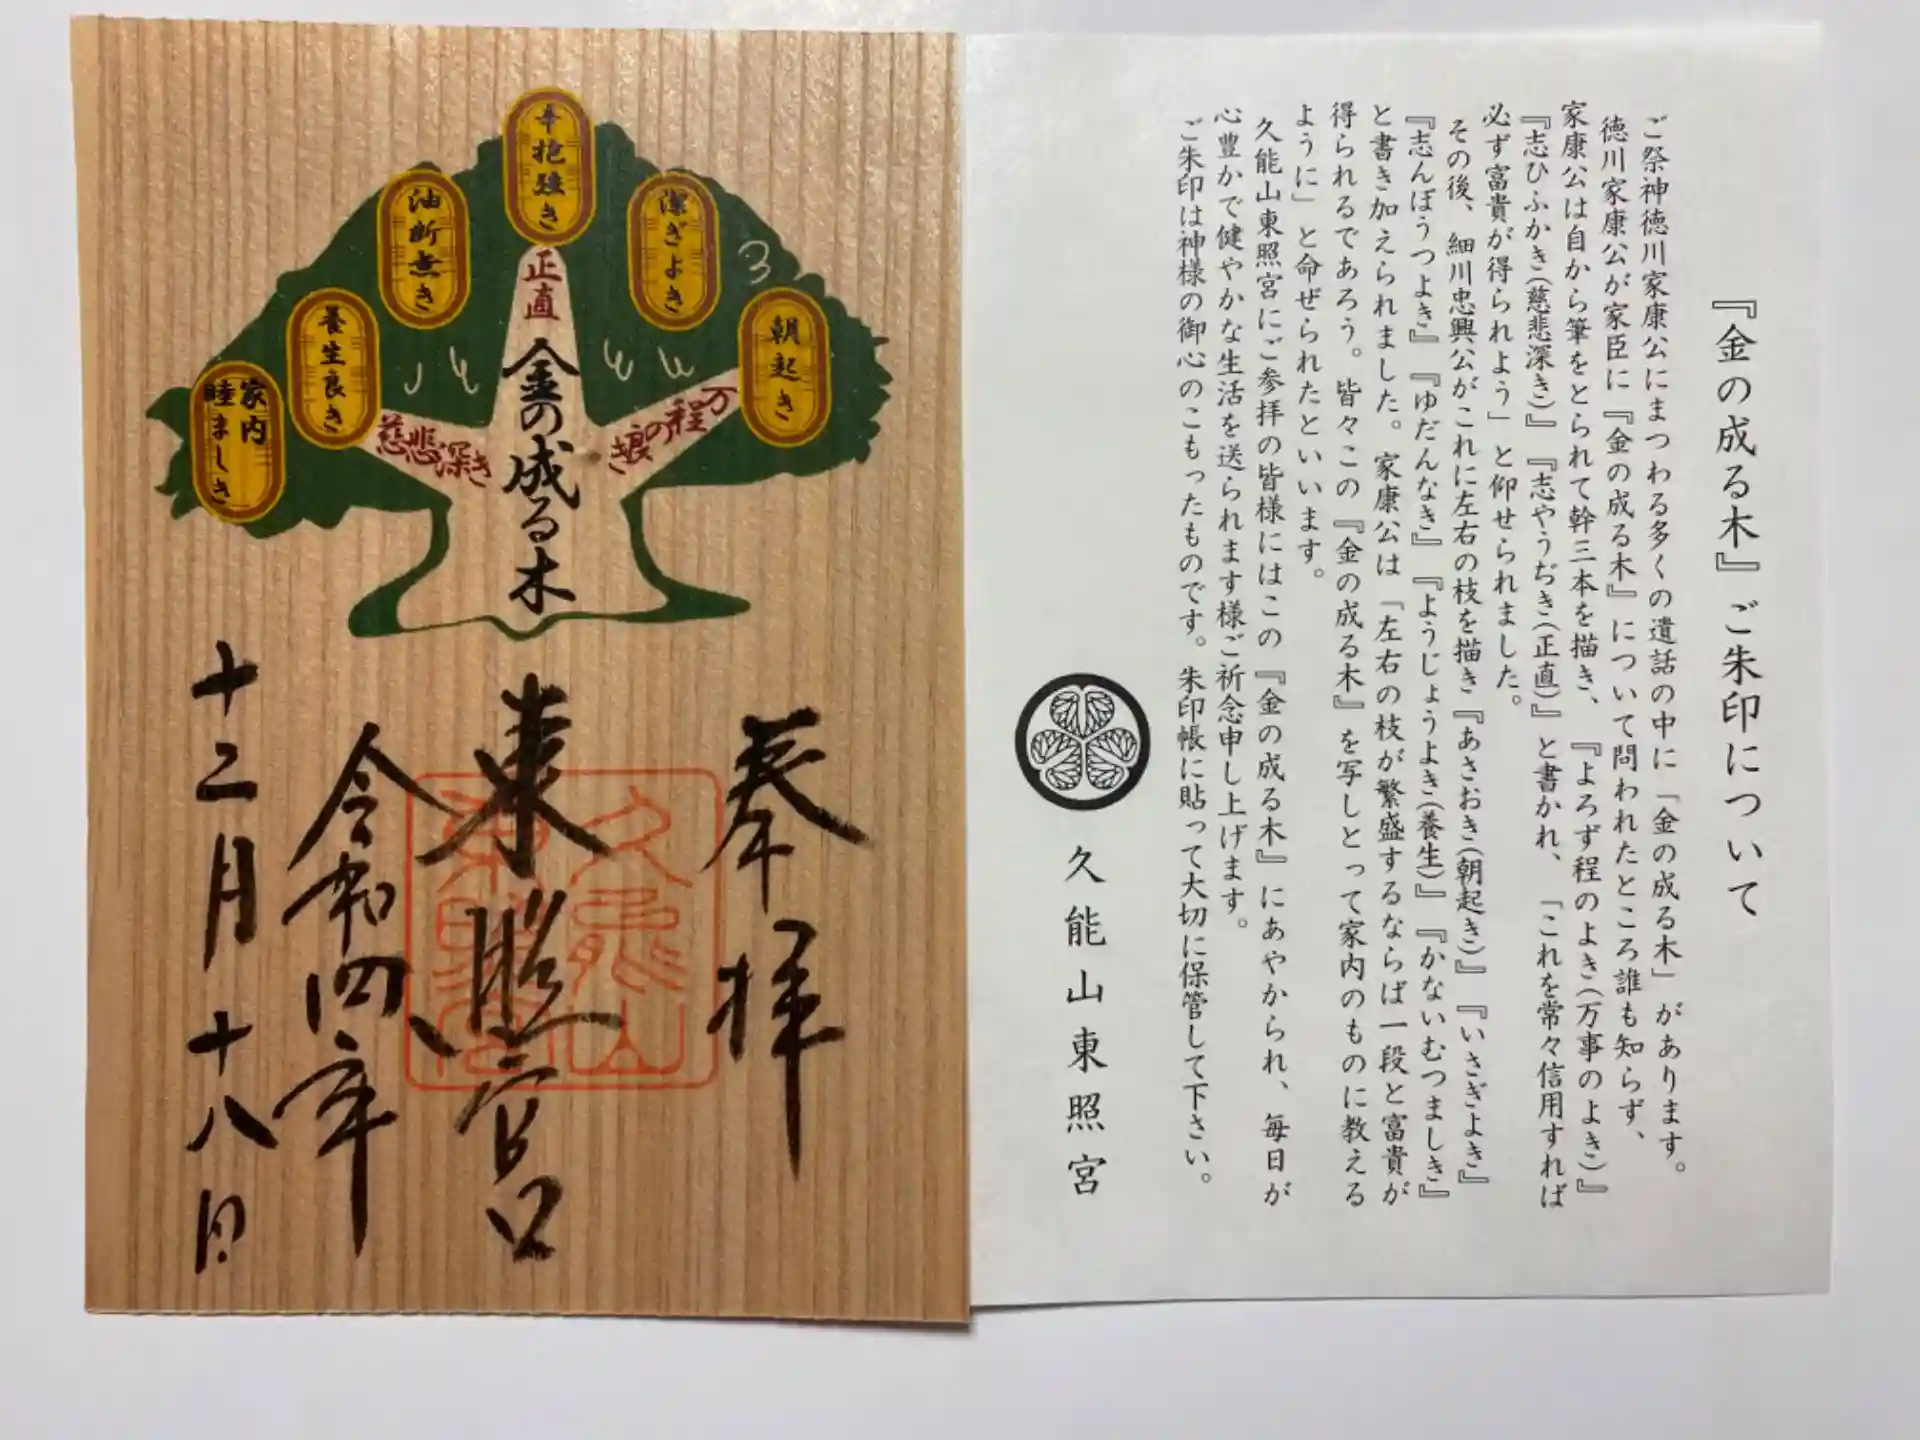 『金の成る木』ご朱印について
ご祭神徳川家康公にまつわる多くの遺話の中に「金の成る木」があります。
徳川家康公が家臣に『金の成る木』について問われたところ誰も知らず、
家康公は自から筆をとられて幹三本を描き、『よろず程のよき(万事のよき)』
『志ひふかき(慈悲深き)』『志やうぢき(正直)』と書かれ、「これを常々信用すれば
必ず富貴が得られよう」と仰せられました。
その後、細川忠興公がこれに左右の枝を描き『あさおき(朝起き)』『いさぎよき』
『志んぼうつよき』『ゆだんなき』『ようじょうよき(養生)』『かないむつましき』
と書き加えられました。家康公は「左右の枝が繁盛するならば一段と富貴が
得られるであろう。皆々この『金の成る木』を写しとって家内のものに教える
ように」と命ぜられたといいます。
久能山東照宮にご参拝の皆様にはこの『金の成る木』にあやかられ、毎日が
心豊かで健やかな生活を送られます様ご祈念申し上げます。
ご朱印は神様の御心のこもったものです。朱印帳に貼って大切に保管して下さい。
久能山東照宮
朝起き
潔ぎよき
辛抱強き
油断無き
養生良き
家内
睦ましき
万程の
正直
慈悲深き
金の成る木
奉拝
東照宮
久能山
東照宮
令和四年
十二月十八日